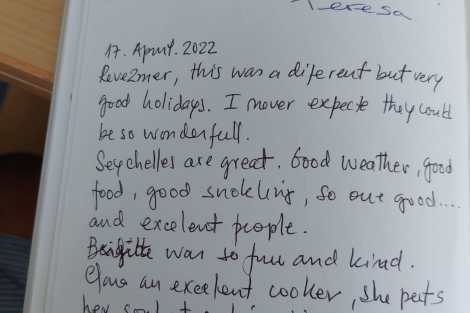 Teresa
17. April. 2022
Reve2mer, this was a diferent but very
good holidays. I never expecte they could
be so wonderfull.
Seychelles are great. Good weather, good
food, good snokling, so one good....
and excelent people.
Brigitte was so fun and kind.
an excelent cooker, she puts
her soul